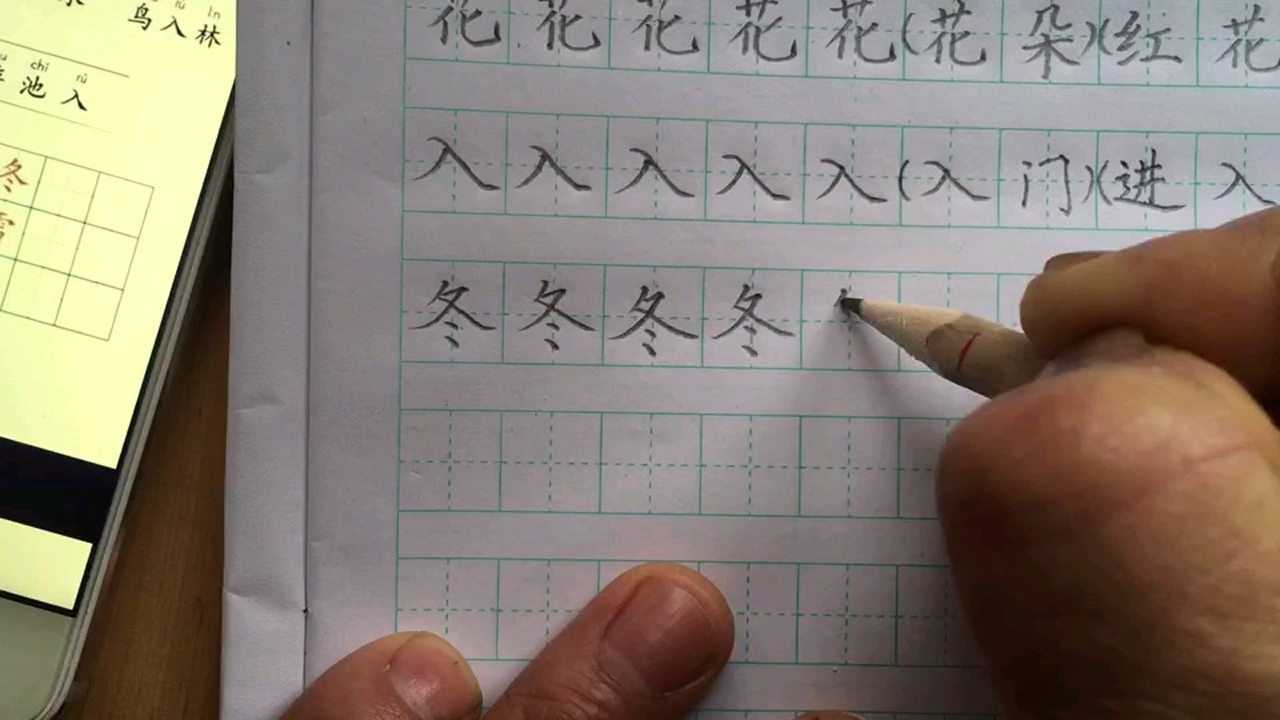 鸟入林
ú ín
chí rù
池入
冬
花花花花花(花朵)(红花
入入入入入(入门)(进入
冬冬冬冬